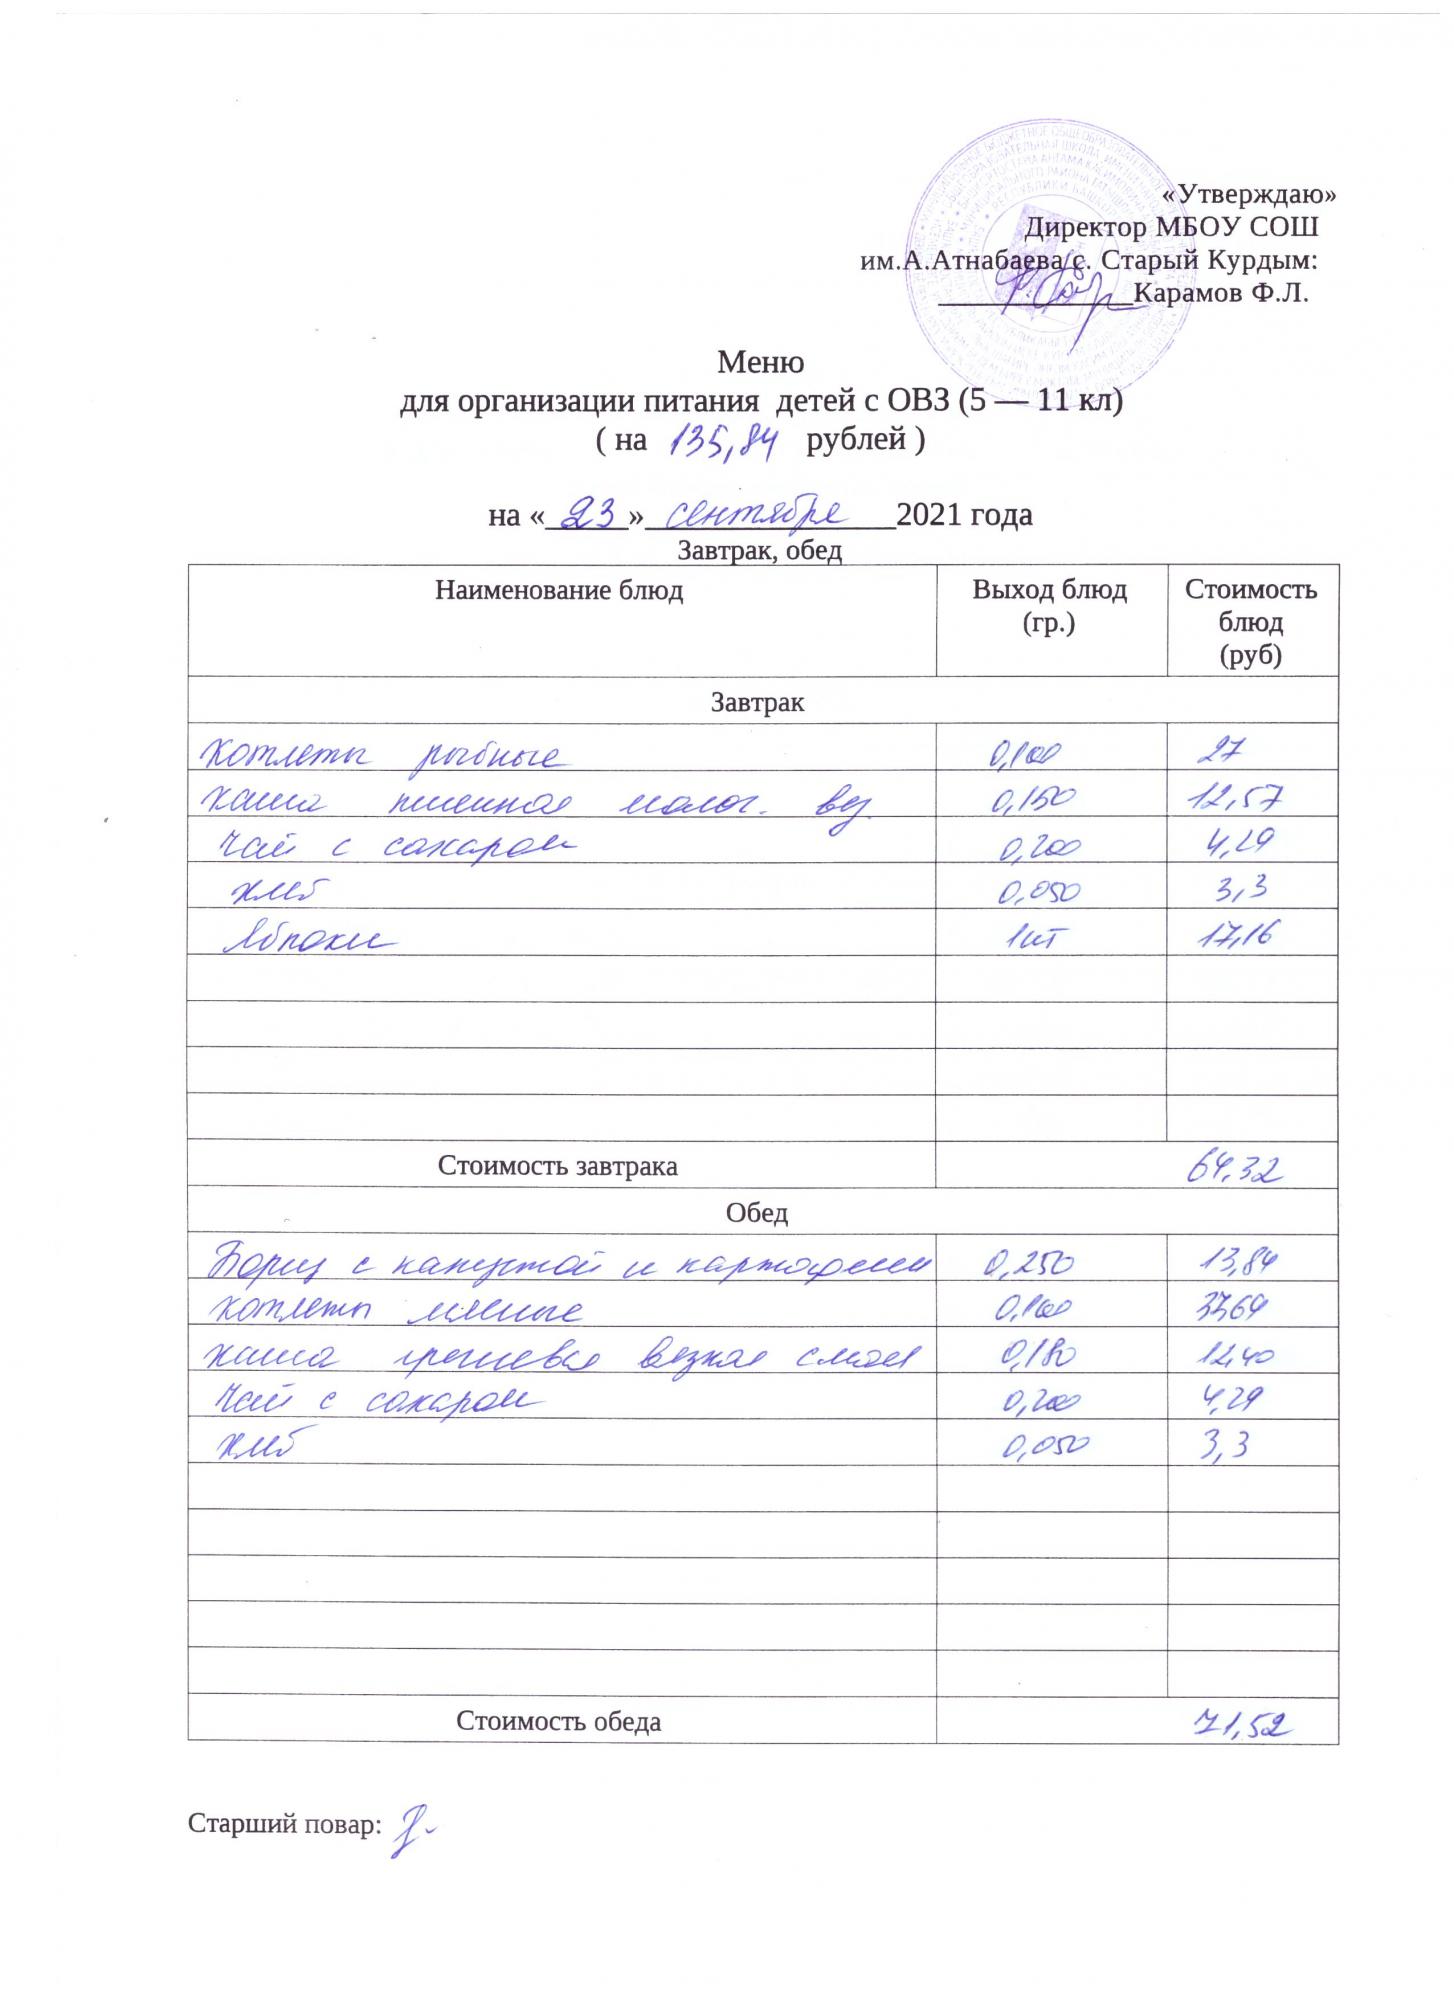 «Утверждаю»
Директор МБОУ СОШ
им.А.Атнабаева с. Старый Курдым:
______________Карамов Ф.Л.
Меню
для организации питания детей с ОВЗ (5 — 11 кл)
( на 135,84 рублей )
на «23» сентября 2021 года
Завтрак, обед
Наименование блюд Выход блюд (гр.) Стоимость блюд (руб)
Завтрак
Котлеты рыбные 0,100 27
Каша пшенная молоч. вяз. 0,150 12,57
Чай с сахаром 0,200 4,29
Хлеб 0,050 3,3
Яблоки 1шт 17,16
Стоимость завтрака 64,32
Обед
Борщ с капустой и картофелем 0,250 13,84
Котлеты мясные 0,100 37,69
Каша гречневая вязкая с маслом 0,180 12,40
Чай с сахаром 0,200 4,29
Хлеб 0,050 3,3
Стоимость обеда 71,52
Старший повар: